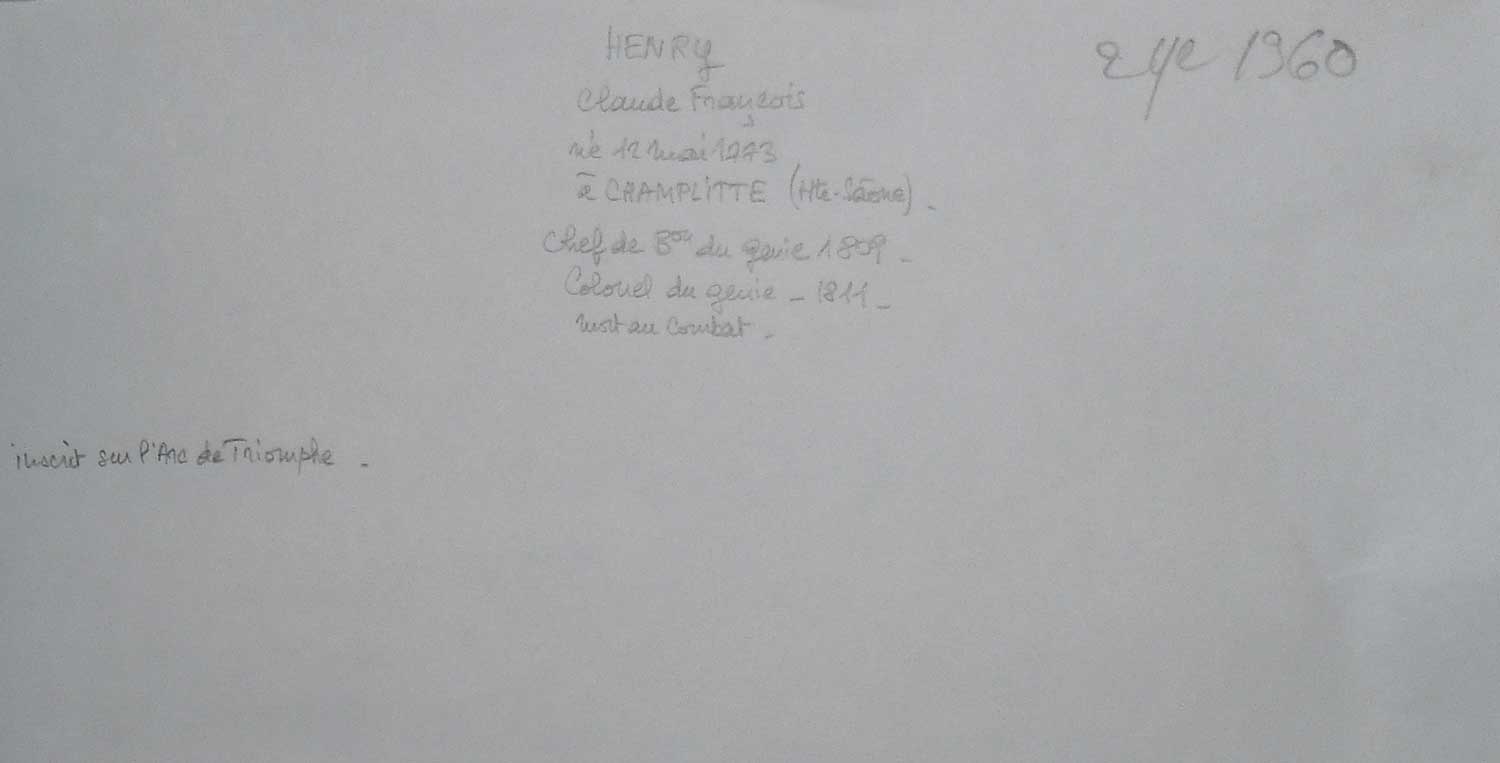 HENRY
Claude François
né 12 mai 1773
à CHAMPLITTE (Hte-Sâone).
Chef de Bon du genie 1809 -
Colonel du genie - 1811 -
Mort au Combat -
inscrit sur l'Arc de Triomphe -
1960